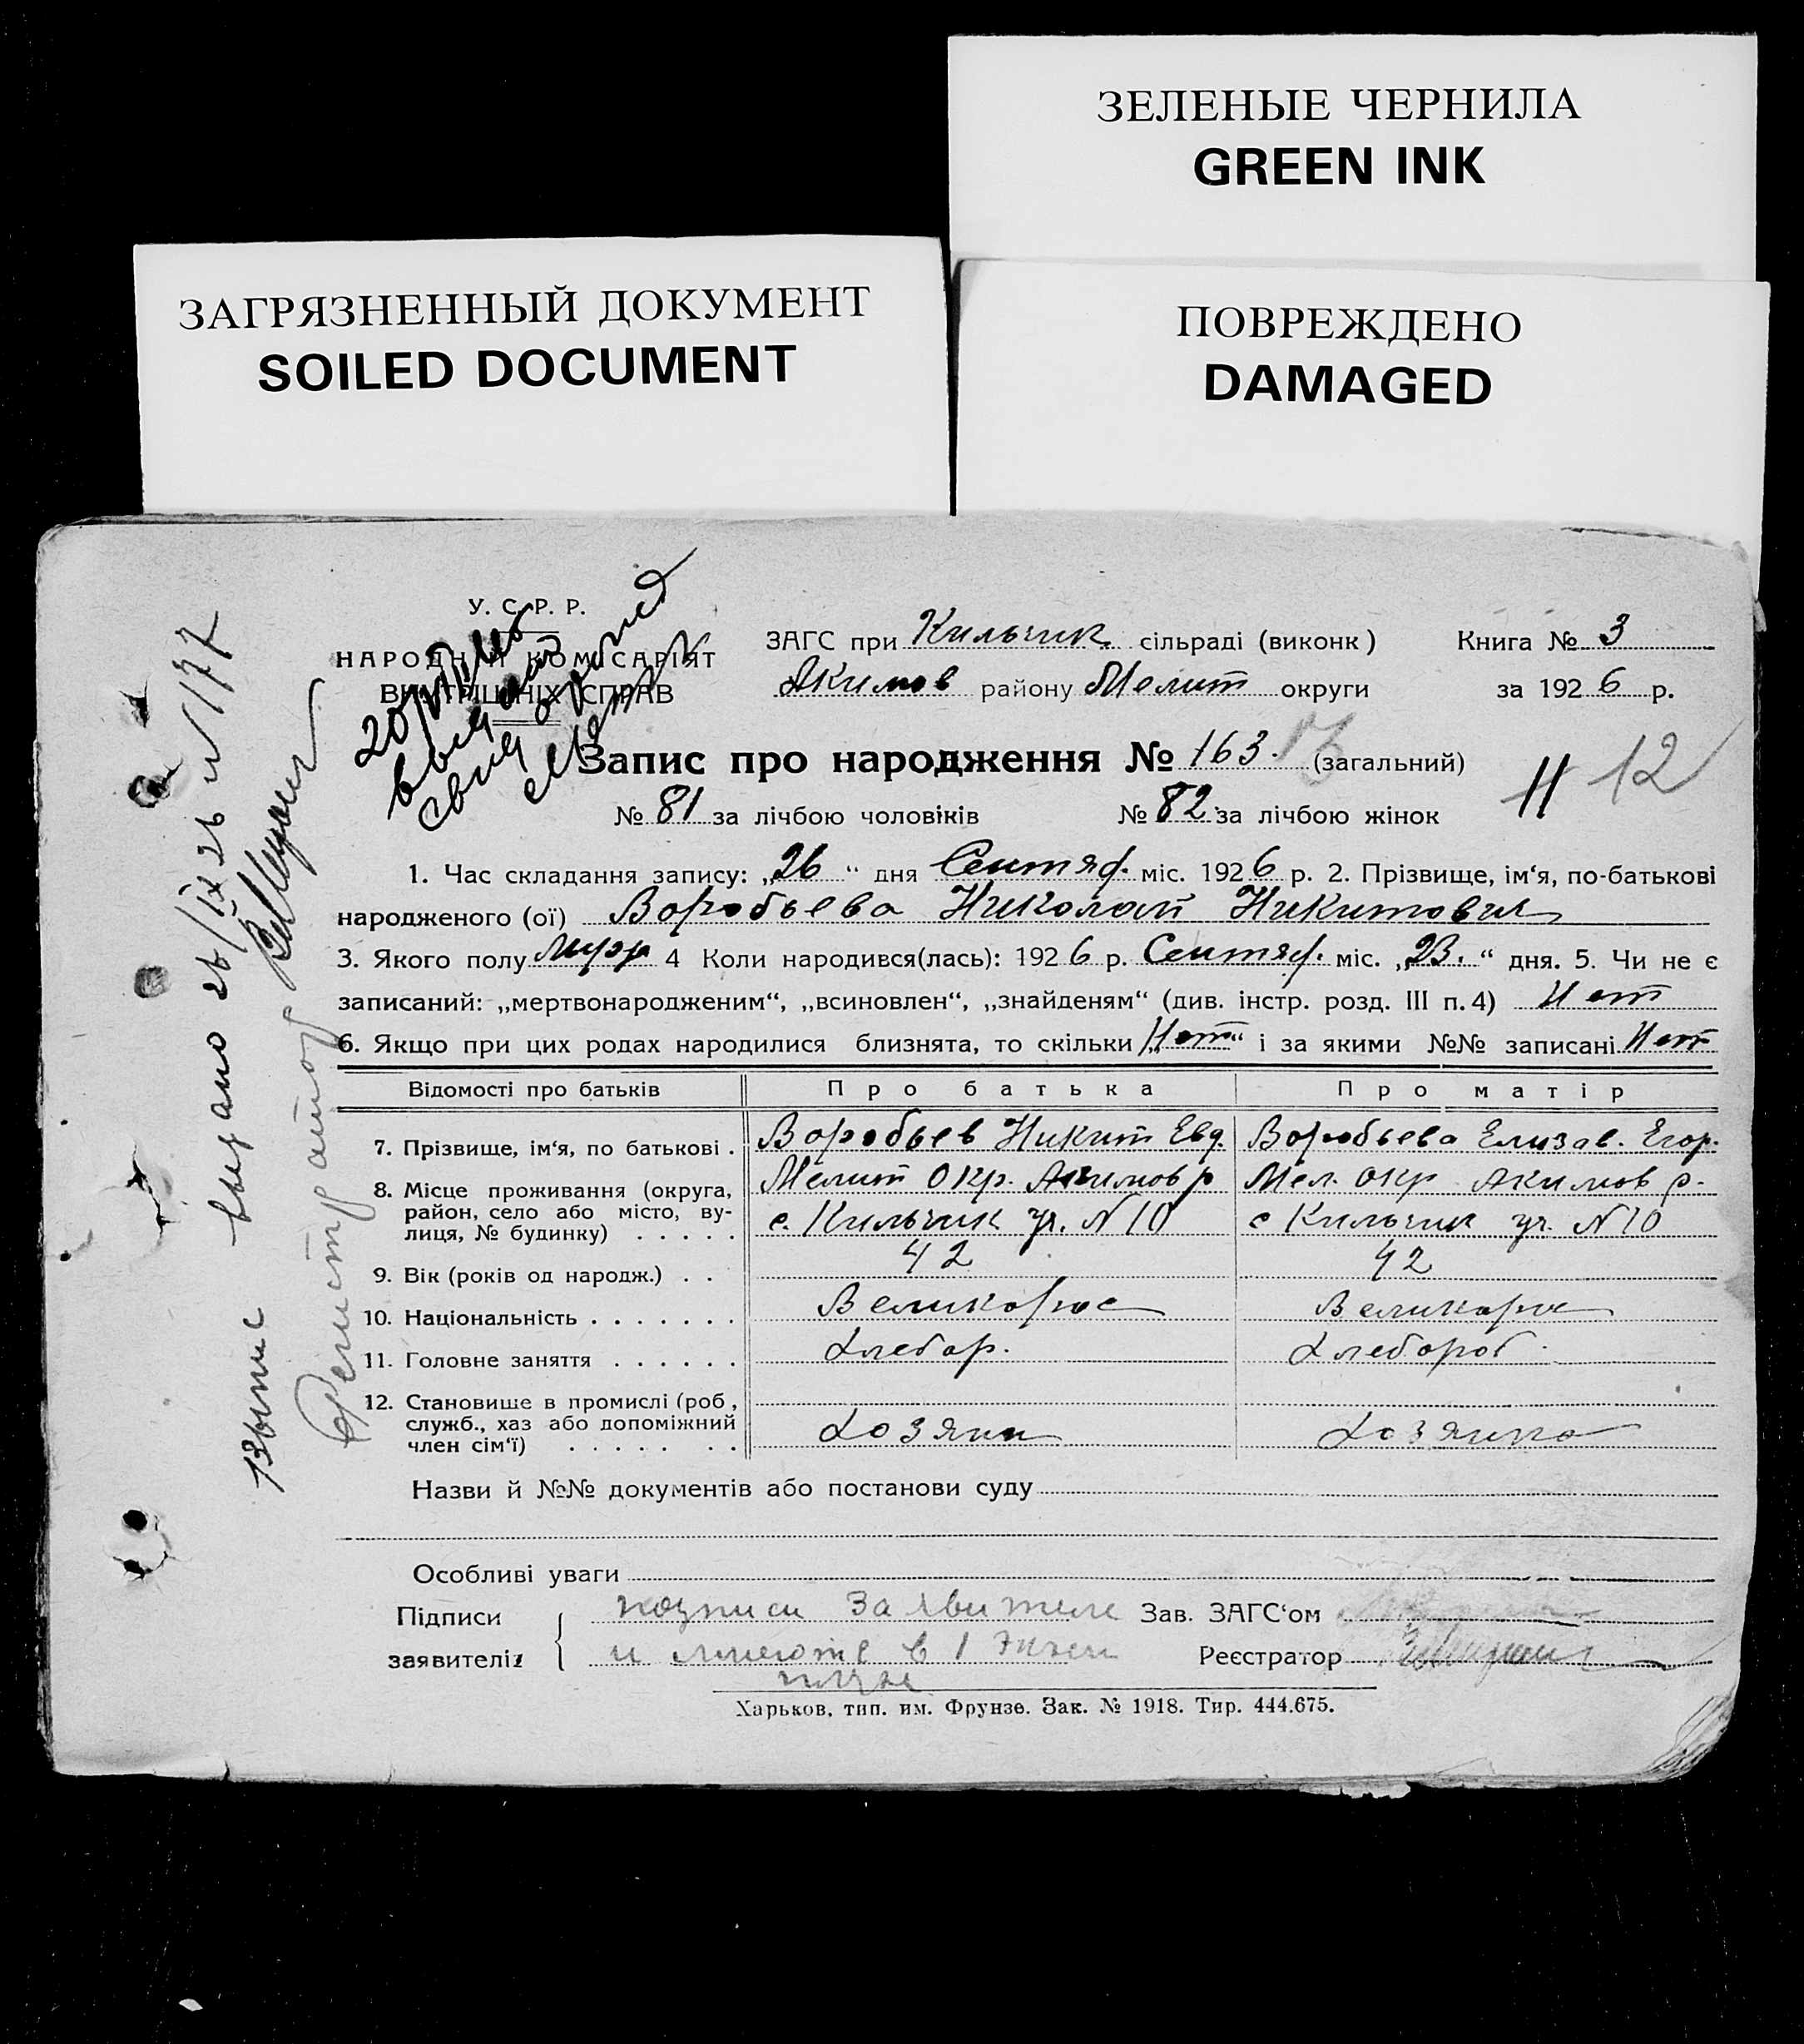 ЗЕЛЕНЫЕ ЧЕРНИЛА
GREEN INK
ЗАГРЯЗНЕННЫЙ ДОКУМЕНТ
SOILED DOCUMENT
ПОВРЕЖДЕНО
DAMAGED
У. С. Р. Р.
НАРОДНІЙ КОМІСАРІЯТ
ВНУТРІШНІХ СПРАВ
ЗАГС при Кильчик. сільраді (виконк) Книга № 3
Акимов району Мелит округи за 1926 р.
Запис про народження № 163. (загальний)
11 12
№ 81 за лічбою чоловіків № 82 за лічбою жінок
1. Час складання запису: „26“ дня Сентяб. міс. 1926 р. 2. Прізвище, ім'я, по-батькові
народженого (ої) Воробьева Николай Никитович
3. Якого полу Муж 4 Коли народився(лась): 1926 р. Сентяб. міс. „23.“ дня. 5. Чи не є
записаний: „мертвонародженим“, „всиновлен“, „знайденям“ (див. інстр. розд. III п. 4) Нет
6. Якщо при цих родах народилися близнята, то скільки „Нет“ і за якими №№ записані Нет
Відомості про батьків Про батька Про матір
7. Прізвище, ім'я, по батькові . Воробьев Никит Евд. Воробьева Елизав. Егор.
8. Місце проживання (округа, район, село або місто, ву-лиця, № будинку) . . . . . Мелит Окр. Акимов р Мел. окр Акимов р.
с. Кильчик уч. N 10 с Кильчик уч. N 10
9. Вік (років од народж.) . . 42 42
10. Національність . . . . . . . Великорос Великорос
11. Головне заняття . . . . . . Хлебор. Хлебороб.
12. Становише в промислі (роб, служб., хаз або допоміжний член сім'ї) . . . . . . . Хозяин Хозяика
Назви й №№ документів або постанови суду
Особливі уваги
Підписи заявителів подписи заявителе Зав. ЗАГС'ом
и имеютс в 1 экзем Реєстратор
пляре
Харьков, тип. им. Фрунзе. Зак. № 1918. Тир. 444.675.
Выпис выдано 26/IX 26 N 177
Регистратор